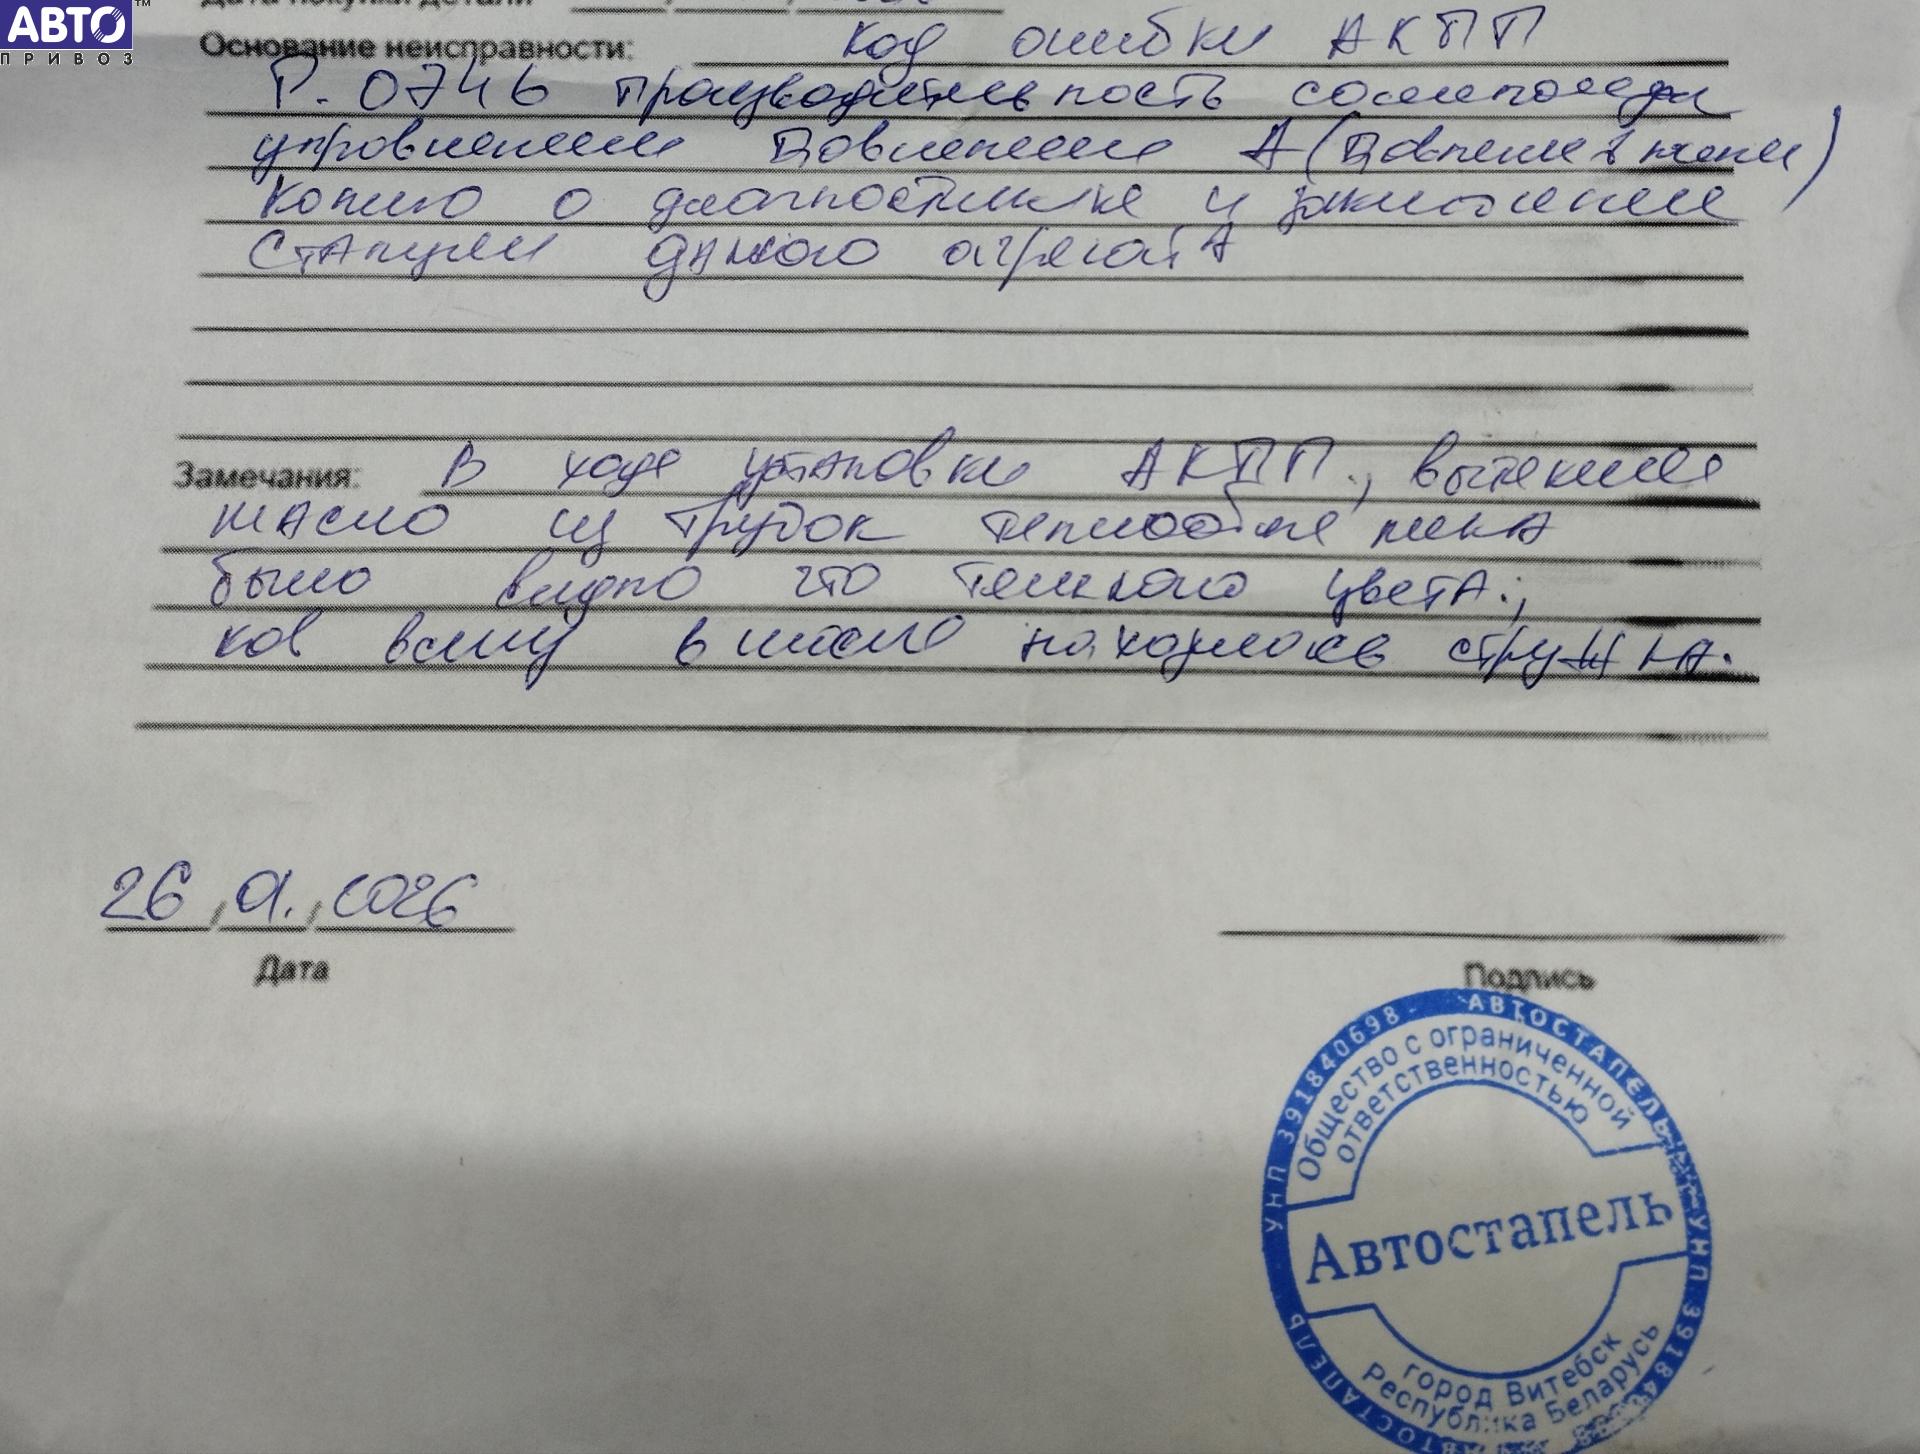 АВТО
ПРИВОЗ
Дата покупки детали
Основание неисправности: Код ошибки АКПП
P.0746 производительность соленоида
управления Давления А (Давление в
Копию о диагностике и заключение
Станции даного агрегата
Замечания: В ходе установки АКПП., вытекшее
масло из трубок теплообменника
было видно что темного цвета.;
в масле находилась стружка.
26 . 01. . 2026
Дата
Подпись
АВТОСТАПЕЛЬ УНП 391840698
Общество с ограниченной
ответственностью
Автостапель
город Витебск
Республика Беларусь